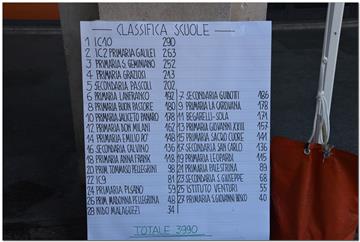 CLASSIFICA SCUOLE
1 IC10 290
2 IC2 PRIMARIA GALILEI 263
3 PRIMARIA S. GEMINIANO 252
4 PRIMARIA GRAZIOSI 213
5 SECONDARIA PASCOLI 202
6 PRIMARIA LANFRANCO 192
8 PRIMARIA BUON PASTORE 180
10 PRIMARIA SALICETO PANARO 178
12 PRIMARIA DON MILANI 162
14 PRIMARIA EMILIO 148
16 SECONDARIA CALVINO 136
18 PRIMARIA ANNA FRANK 118
20 PRIM. TOMMASO PELLEGRINI 98
22 IC9 81
24 PRIMARIA PISANO 59
26 PRIM. MADONNA PELLEGRINA 48
28 NIDO MALAGUZZI 34
7 SECONDARIA GUINOTTI 186
9 PRIMARIA LA CAROVANA 178
11 BEGARELLI-SOLA 171
13 PRIMARIA GIOVANNI XXIII 157
15 PRIMARIA SACRO CUORE 144
17 SECONDARIA SAN CARLO 136
19 PRIMARIA LEOPARDI 115
21 PRIMARIA PALESTRINA 89
23 SECONDARIA S. GIUSEPPE 68
25 ISTITUTO VENTURI 55
27 PRIMARIA S. GIOVANNI BOSCO 40
TOTALE 3990